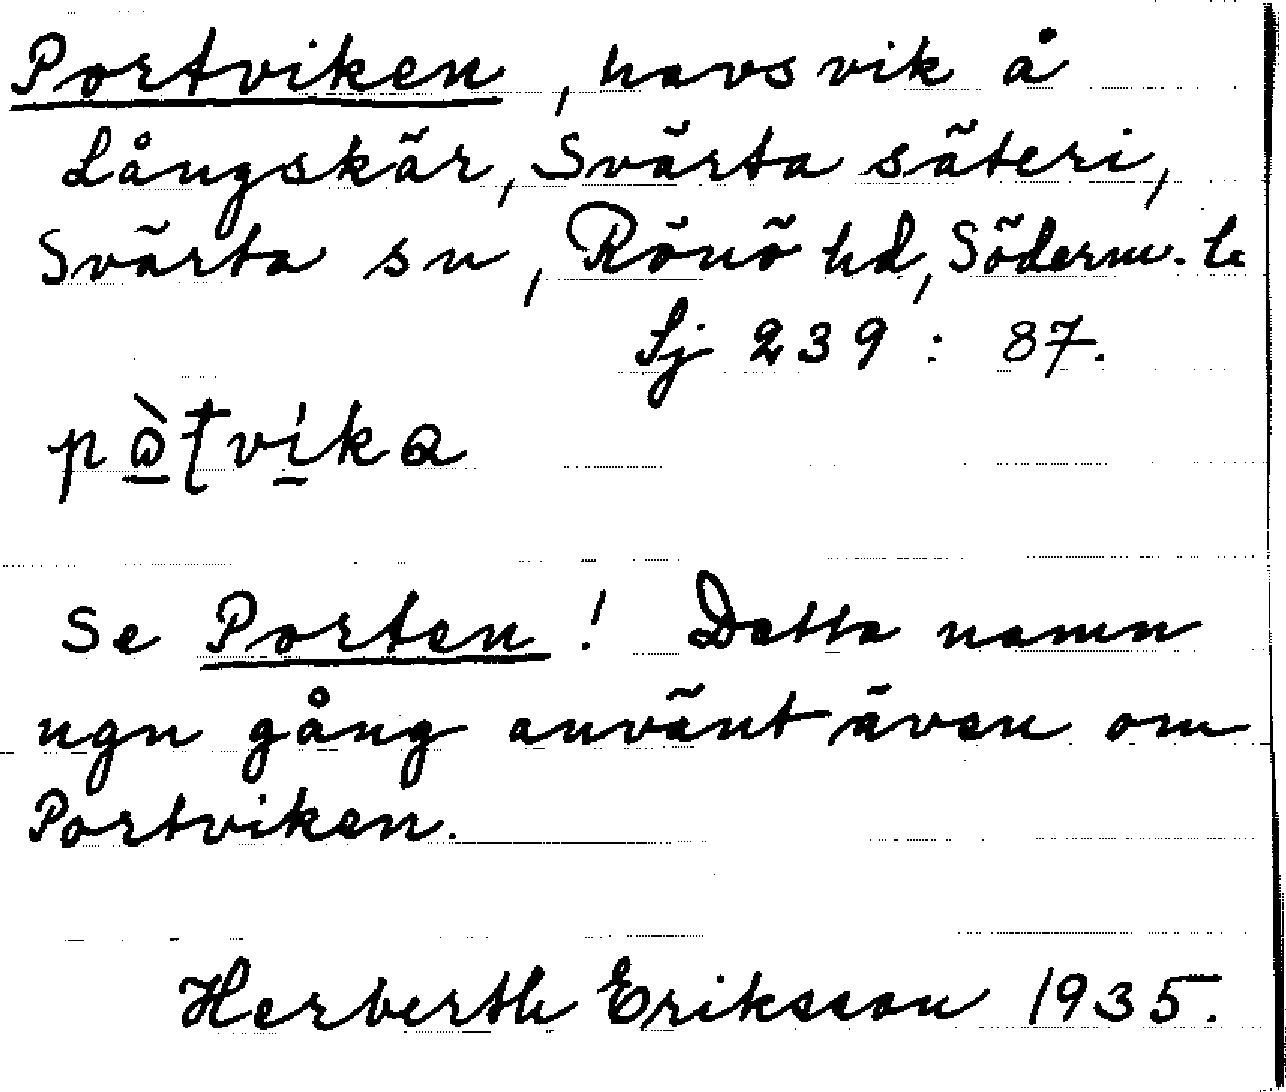 Portviken, havsvik å
Långskär, Svärta säteri,
Svärta sn, Rönö hd, Söderm. l.
Sj 239 : 87.
Se Porten! Detta namn
ngn gång använt även om
Portviken.
Herberth Eriksson 1935.